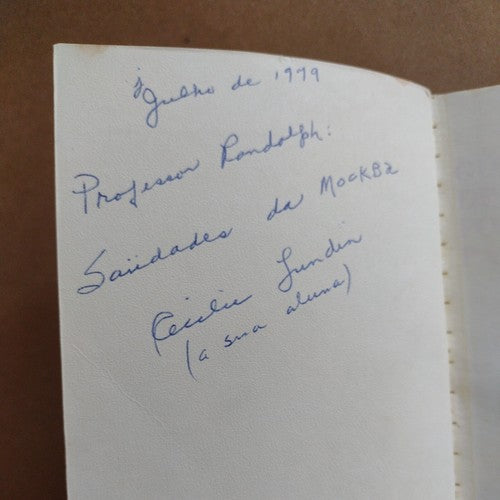 Julho de 1979
Professor Randolph:
Saüdades da Mockba
Cecilie Lundin
(a sua aluna)